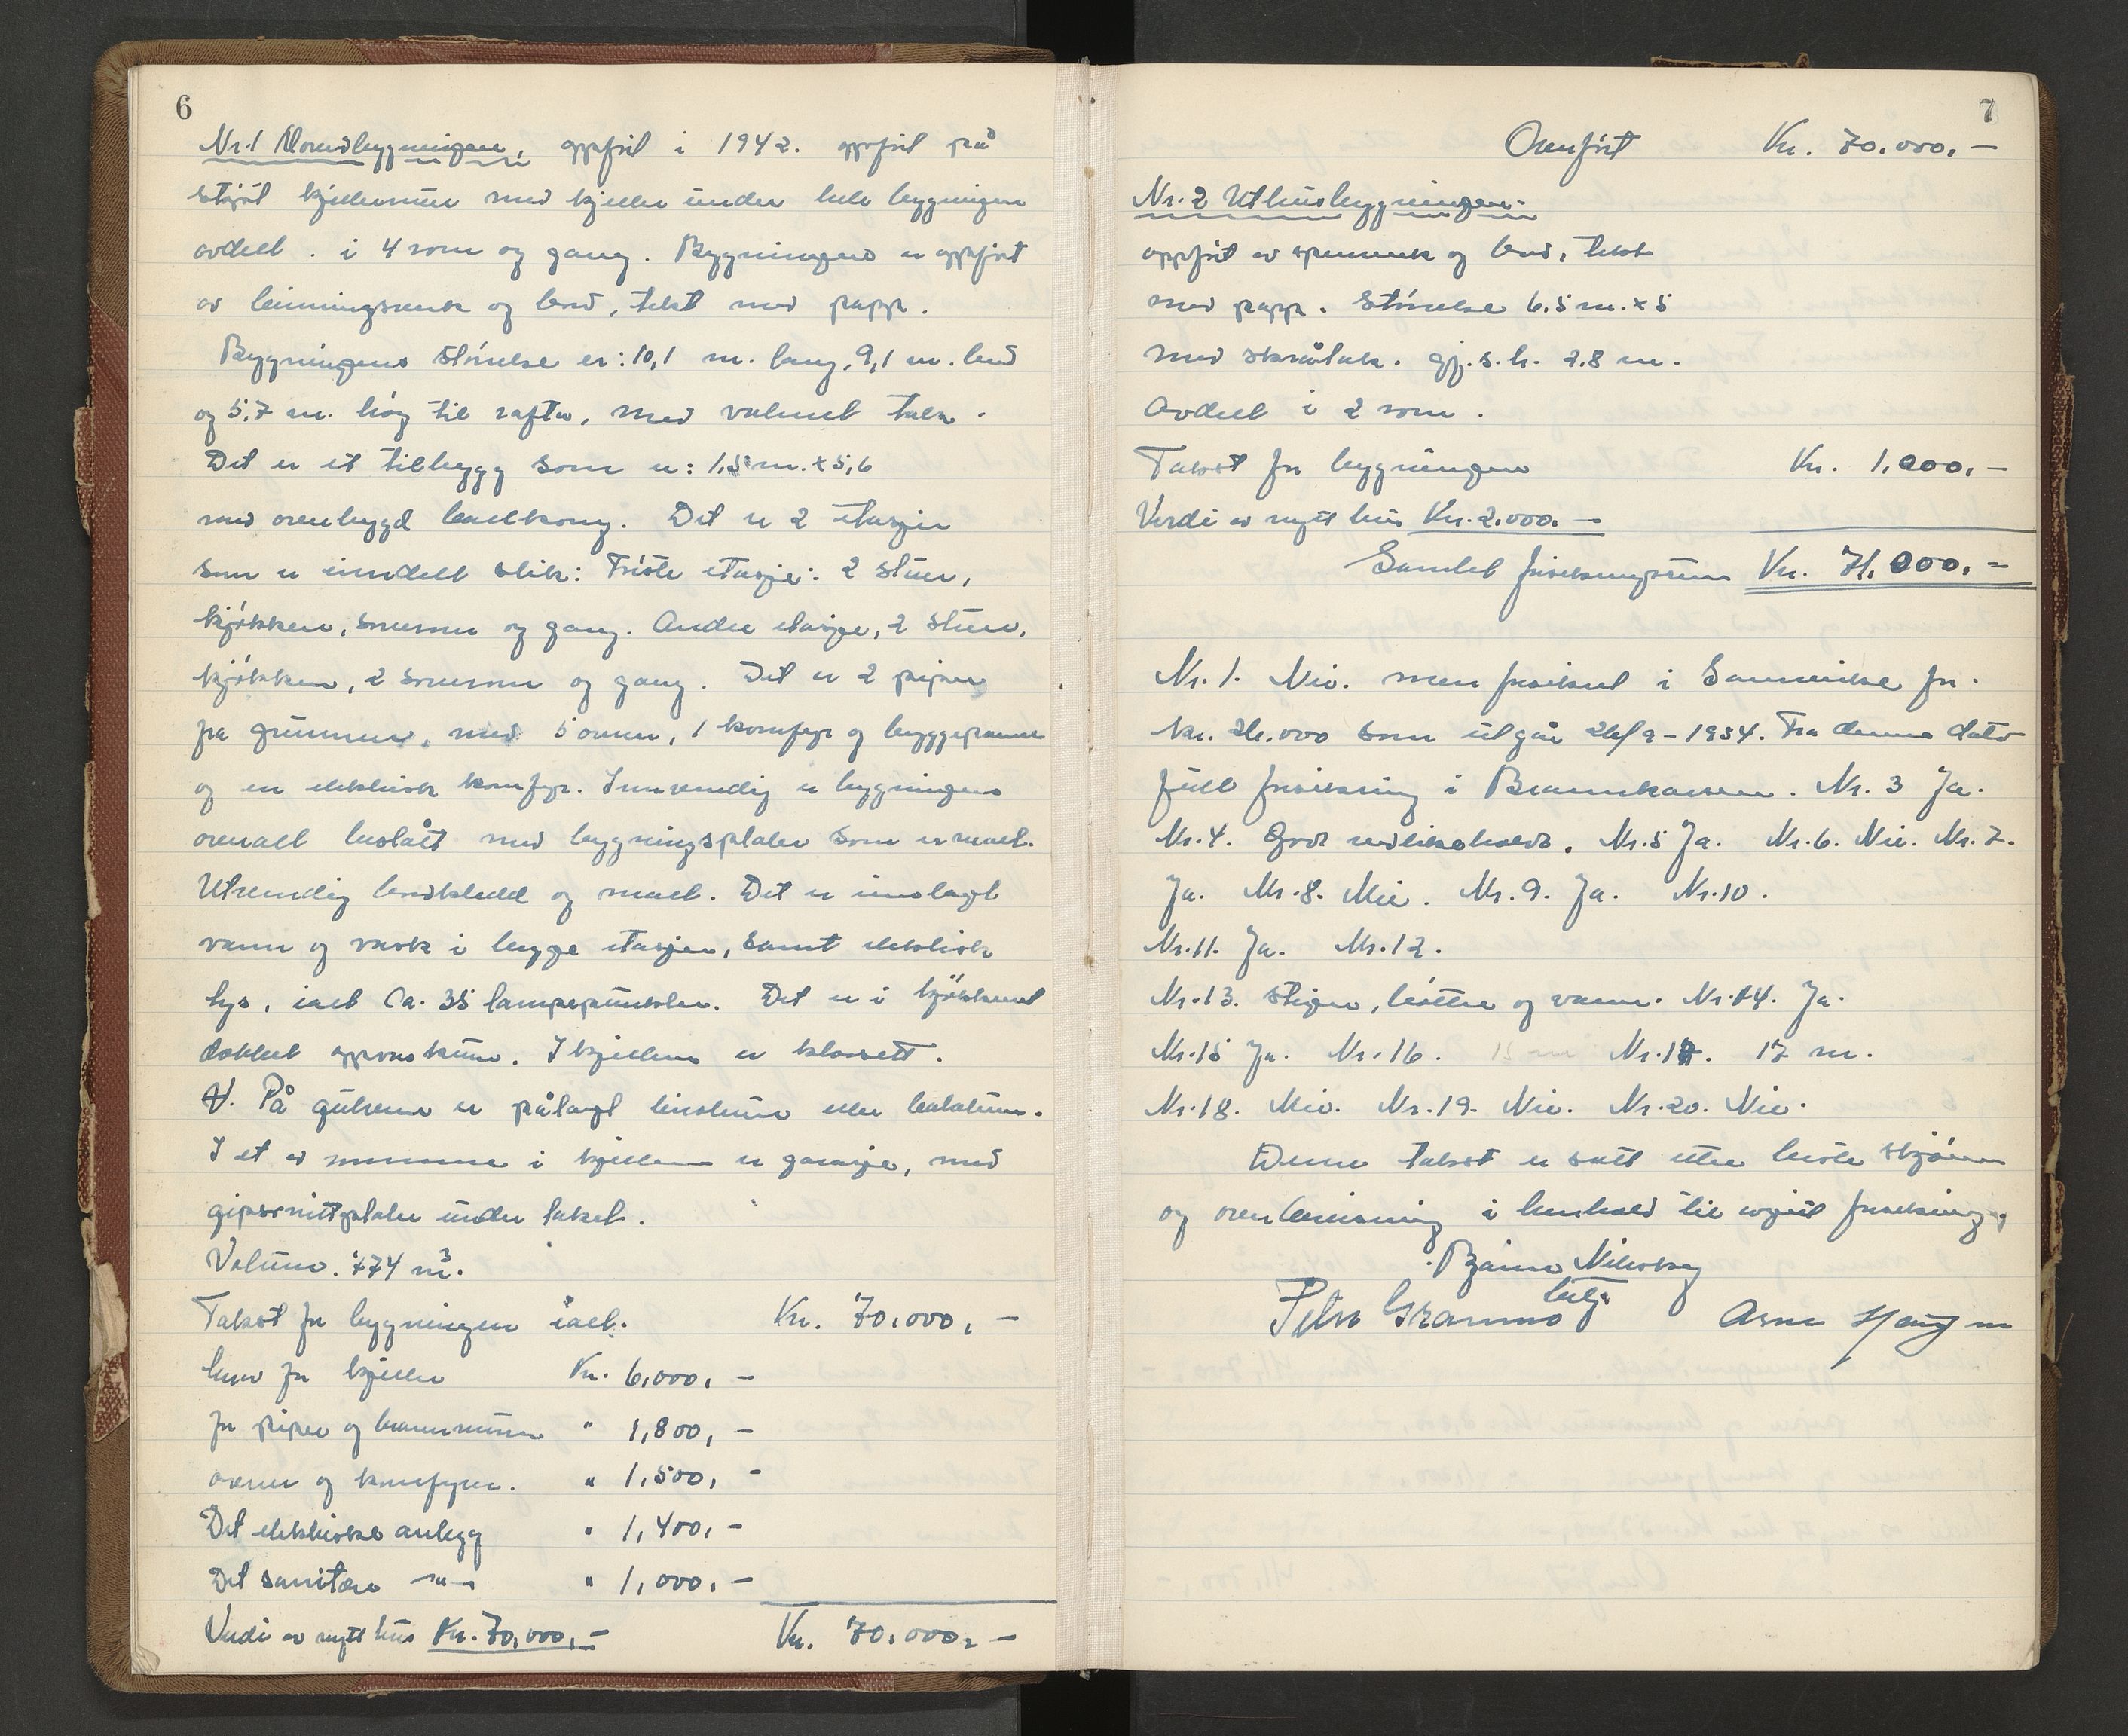 6
Nr. 1 Hovedbygningen, oppført i 1942. oppført på
støpt kjellermur med kjeller under hele bygningen
avdelt. i 4 rom og gang. Bygningens er oppført
av binningsverk og bord, tekt med papp.
Bygningens størrelse er: 10,1 m. lang, 9,1 m. bred
og 5,7 m. høg til rafta, med valmet tak.
Det er et tilbygg som er: 1,5 m. x 5,6
med overbygd ballkong. Det er 2 etasjer
som er inndelt slik: Første etasje: 2 stuer,
kjøkken, soverom og gang. Andre etasje, 2 stuer,
kjøkken, 2 soverom og gang. Det er 2 piper
fra grunnen, med 5 ovner, 1 komfyr og bryggepanne
og en elektrisk komfyr. Innvendig er bygningens
overalt beslått med bygningsplater som er malt.
Utvendig bordkledd og malt. Det er innlagt
vann og vask i begge etasjer, samt elektrisk
lys, ialt ca. 35 lampepunkter. Det er i kjøkkenet
dobbel oppvaskkum. I kjelleren er klosett.
V. På gulvene er pålagt linoleum eller balatum.
I et av rommene i kjelleren er garasje, med
gipsonittplater under taket.
Volum. 474 m³.
Takst for bygningen ialt. Kr. 70.000, -
herav for kjeller Kr. 6,000, -
for piper og brannmurer " 1,800, -
ovner og komfyrer. " 1,500, -
Det elektriske anlegg " 1,400, -
Det sanitære -"- " 1,000, -
Verdi av nytt hus Kr. 70,000, - Kr. 70.000, -
7
Overført Kr. 70.000, -
Nr. 2 Uthusbygningen.
oppført av sperreverk og bord, tekt
med papp. Størrelse 6.5 m. x 5
med skråtak. gj. s. h. 2.8 m.
Avdelt i 2 rom.
Takst for bygningen Kr. 1,000, -
Verdi av nytt hus Kr. 2.000. -
Samlet forsikringssum Kr. 71.000. -
Nr. 1. Nei. men forsikret i Samvirke for
kr. 26.000 som utgår 26/9 - 1954. Fra denne dato
full forsikring i Brannkassen. Nr. 3 Ja.
Nr. 4. Godt vedlikeholdt. Nr. 5 Ja. Nr. 6. Nei. Nr. 7.
Ja. Nr. 8. Nei. Nr. 9. Ja. Nr. 10.
Nr. 11. Ja. Nr. 12.
Nr. 13. Stiger, bøtter og vann. Nr. 14. Ja.
Nr. 15 Ja. Nr. 16. 15 m Nr. 17. 17 m.
Nr. 18. Nei. Nr. 19. Nei. Nr. 20. Nei.
Denne takst er satt etter beste skjønn
og overbevisning i henhold til avgitt forsikring.
Bjarne
Peter Gramno Arne Haugen